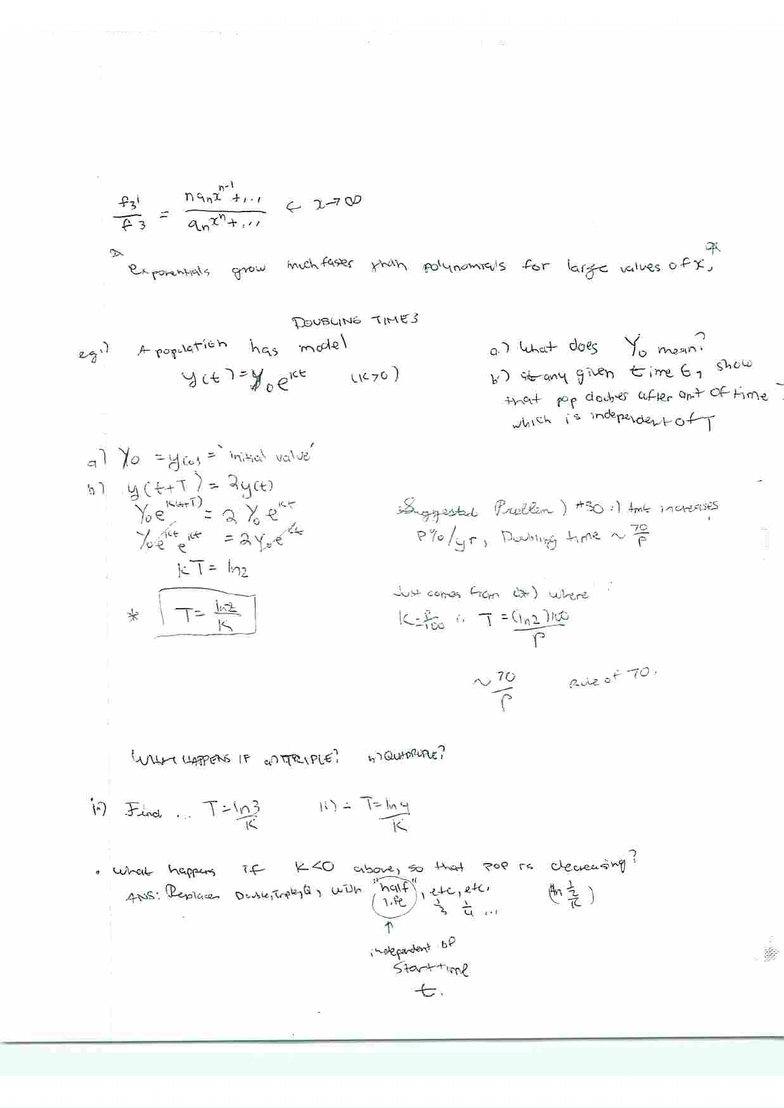 f₃'/f₃ = (n aₙxⁿ⁻¹ + ...)/(aₙxⁿ + ...) ← x→∞
* Exponentials grow much faster than polynomials for large values of x, *
DOUBLING TIMES
eg.) A population has model
y(t) = Y₀e^{kt} (k>0)
a.) What does Y₀ mean?
b.) at any given time t, show
that pop doubles after amt of time
which is independent of T
a) Y₀ = y(0) = 'initial value'
b) y(t+T) = 2y(t)
Y₀e^{k(t+T)} = 2 Y₀e^{kt}
Y₀e^{kt} e^{kt} = 2Y₀e^{kt}
kT = ln2
* T = ln2/k
Suggested Problem) #30:) amt increases
P%/yr, Doubling time ~ 70/P
Just comes from (*) where
k = P/100 ∴ T = (ln2)100/P
~ 70/P Rule of 70.
WHAT HAPPENS IF a) TRIPLE? b) QUADRUPLE?
Find ... T = ln3/k ii) = T = ln4/k
• What happens if k<0 above, so that pop is decreasing?
ANS: Replace Double, Triple, with "half life", etc, etc. 1/3 1/4 ... (ln ½/k)
↑
independent of
start time
t.